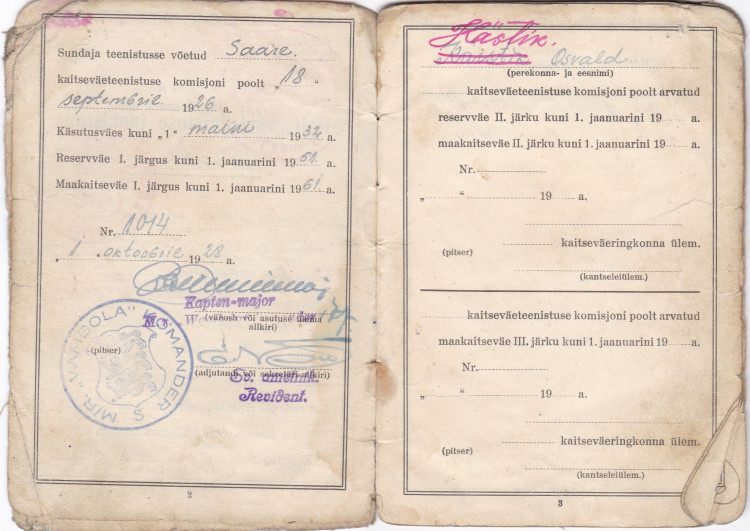 Sundaja teenistusse võetud Saare.
kaitseväeteenistuse komisjoni poolt „18"
septembril 1926 a.
Käsutusväes kuni „1" maini 1932 a.
Reservväe I. järgus kuni 1. jaanuarini 1951. a.
Maakaitseväe I. järgus kuni 1. jaanuarini 1961. a.
Nr. 1014
„1. oktoobril 1928 a.
Kapten-major
(väeosh või asutuse ülema
allkiri)
(pitser)
S MIR. „WAMBOLA" KOMANDER
(adjutandi või sekretäri allkiri)
Sv. ametnik.
Revident.
2
Hästik.
Osvald
(perekonna- ja eesnimi)
kaitseväeteenistuse komisjoni poolt arvatud
reservväe II. järku kuni 1. jaanuarini 19 a.
maakaitseväe II. järku kuni 1. jaanuarini 19 a.
Nr.
„ " 19 a.
kaitseväeringkonna ülem.
(pitser)
(kantseleiülem.)
kaitseväeteenistuse komisjoni poolt arvatud
maakaitseväe III. järku kuni 1. jaanuarini 19 a.
Nr.
„ " 19 a.
kaitseväeringkonna ülem.
(pitser)
(kantseleiülem.)
3